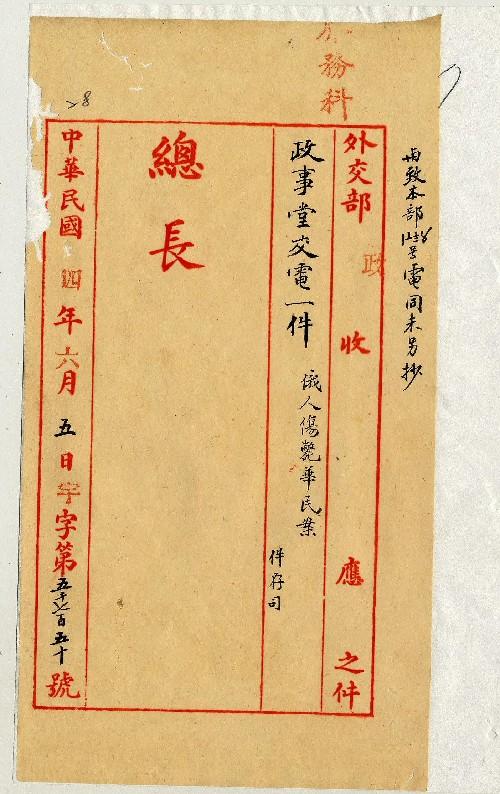 務科
與致本部 號電同未另抄
外交部 政 收 應 之件
政事堂交電一件 俄人傷斃華民案
件存司
總長
中華民國 四年六月五日宇字第五千六百五十號
28